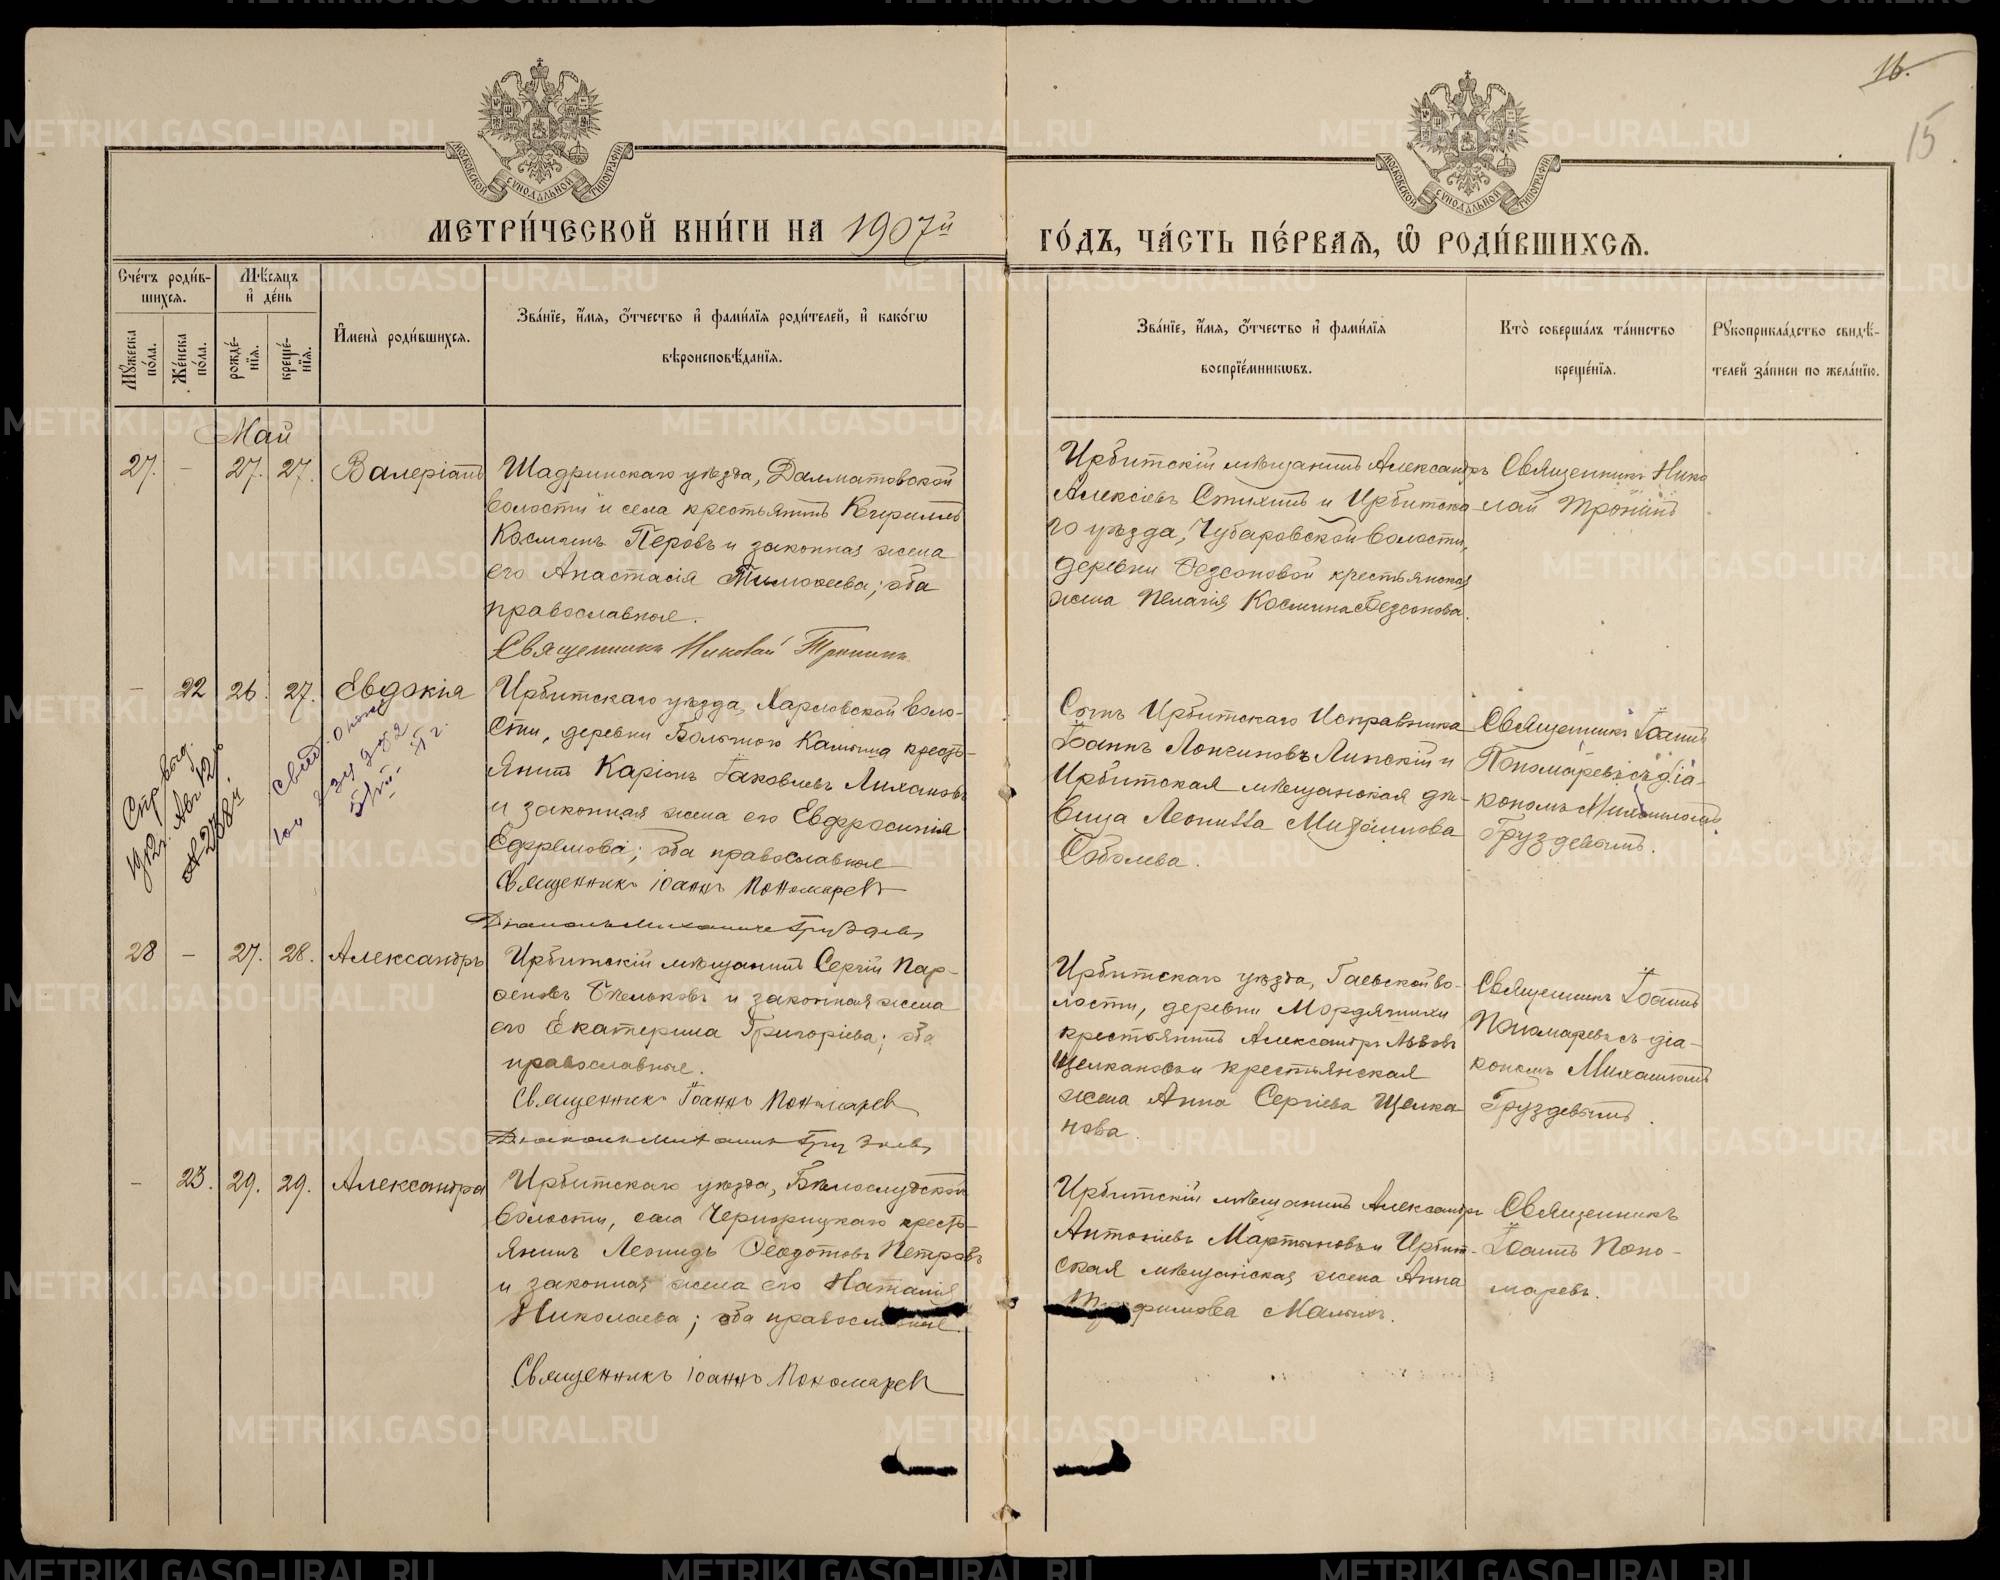 16.
15
МОСКОВСКОЙ СУНОДАЛЬНОЙ ТИПОГРАФІИ
МОСКОВСКОЙ СУНОДАЛЬНОЙ ТИПОГРАФІИ
МЕТРИ́ЧЕСКОЙ КНИ́ГИ НА 1907й
ГО́ДЪ, ЧА́СТЬ ПЕ́РВАѦ, Ѡ҆ РОДИ́ВШИХСѦ.
Сче́тъ роди́в-
шихсѧ.
Мꙋ́жеска по́ла.
Же́нска по́ла.
Мѣ́сѧцъ
и҆ де́нь
рожде́-
нїѧ.
креще́-
нїѧ.
И҆мена̀ роди́вшихсѧ.
Зва́нїе, и҆́мѧ, ѻ҆́тчество и҆ фами́лїѧ роди́телей, и҆ како́гѡ
вѣроисповѣ́данїѧ.
Зва́нїе, и҆́мѧ, ѻ҆́тчество и҆ фами́лїѧ
воспрїе́мникѡвъ.
Кто̀ соверша́лъ та́инство
креще́нїѧ.
Рꙋкоприкла́дство свидѣ́-
телей за́писи по жела́нїю.
Май
27. - 27. 27. Валеріанъ
Шадринскаго уѣзда, Далматовской
волости и села крестьянинъ Кириллъ
Космичъ Перовъ и законная жена
его Анастасія Тимоѳеева; оба
православные.
Священникъ Николай Тронинъ
Ирбитскій мѣщанинъ Александръ
Алексіевъ Стихинъ и Ирбитска-
го уѣзда, Чубаровской волости,
деревни Бедсоновой крестьянская
жена Пелагія Космина Бедсонова.
Священникъ Нико
лай Тронинъ
- 22 26. 27. Евдокія
Ирбитскаго уѣзда, Харловской воло-
сти, деревни Большою Камыша кресть-
янинъ Каріонъ Іаковлевъ Лихановъ
и законная жена его Евфросинія
Ефремова; оба православные
Священникъ Іоаннъ Пономаревъ
Діаконъ Михаилъ Груздевъ
Сынъ Ирбитскаго Исправника
Іоаннъ Лонгиновъ Липскій и
Ирбитская мѣщанская дѣ-
вица Леонилла Михаилова
Соболева.
Священникъ Іоаннъ
Пономаревъ съ діа-
кономъ Михаиломъ
Груздевымъ.
Справка
1912г. Авг 12
№ 2768й
Свид. о рож
28 - 27. 28. Александръ
Ирбитскій мѣщанинъ Сергій Пар-
ѳеновъ Стельковъ и законная жена
его Екатерина Григоріева; оба
православные.
Священникъ Іоаннъ Пономаревъ
Діаконъ Михаилъ Груздевъ
Ирбитскаго уѣзда, Гаевской во-
лости, деревни Мордяшихи
крестьянинъ Александръ Львовъ
Щелкановъ и крестьянская
жена Анна Сергіева Щелка-
нова.
Священникъ Іоаннъ
Пономаревъ съ діа-
кономъ Михаиломъ
Груздевымъ.
- 23. 29. 29. Александра
Ирбитскаго уѣзда, Бѣлослудской
волости, села Чернорицкаго кресть-
янинъ Леонидъ Ѳеодотовъ Петровъ
и законная жена его Наталія
Николаева; оба православные.
Священникъ Іоаннъ Пономаревъ
Ирбитскій мѣщанинъ Александръ
Антоніевъ Мартыновъ и Ирбит-
ская мѣщанская жена Анна
Трофимова Малыхъ.
Священникъ
Іоаннъ Поно-
маревъ.
METRIKI.GASO-URAL.RU